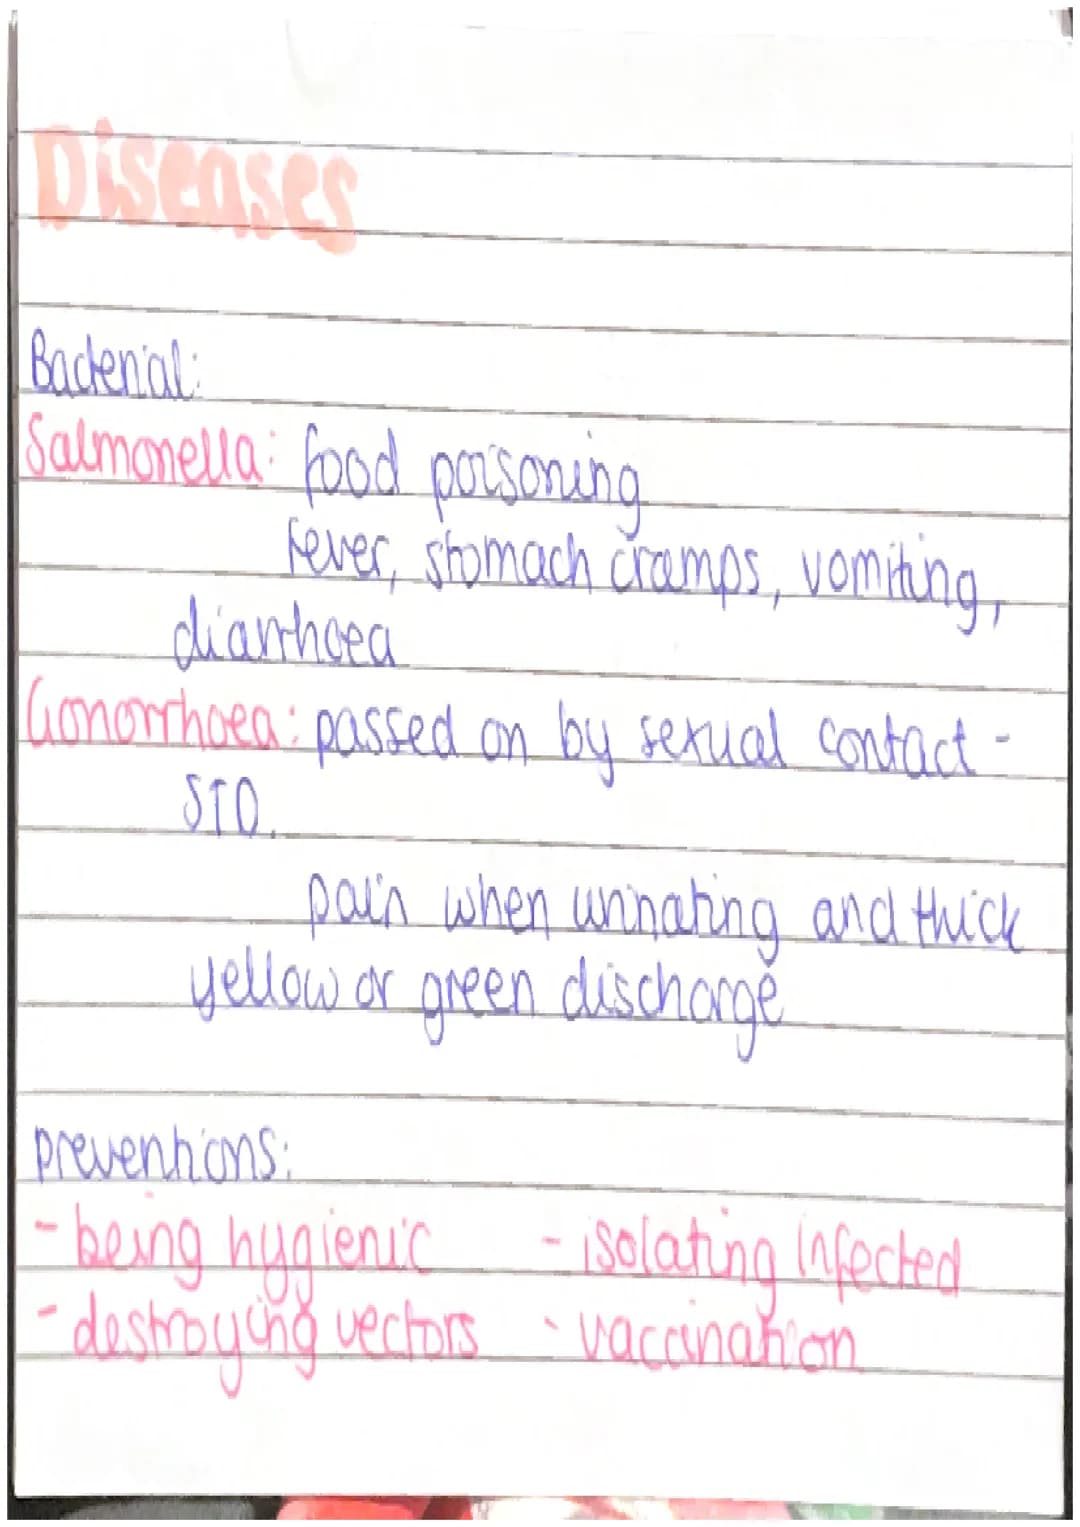 Diseases
Bacterial:
Salmonella: food poisoning
fever, stomach cramps, vomiting,
diarrhoea
Gonorrhoea: passed on by sexual contact -
STD.
pain when urinating and thick
yellow or green discharge
preventions:
- being hygienic - isolating infected
- destroying vectors - vaccination